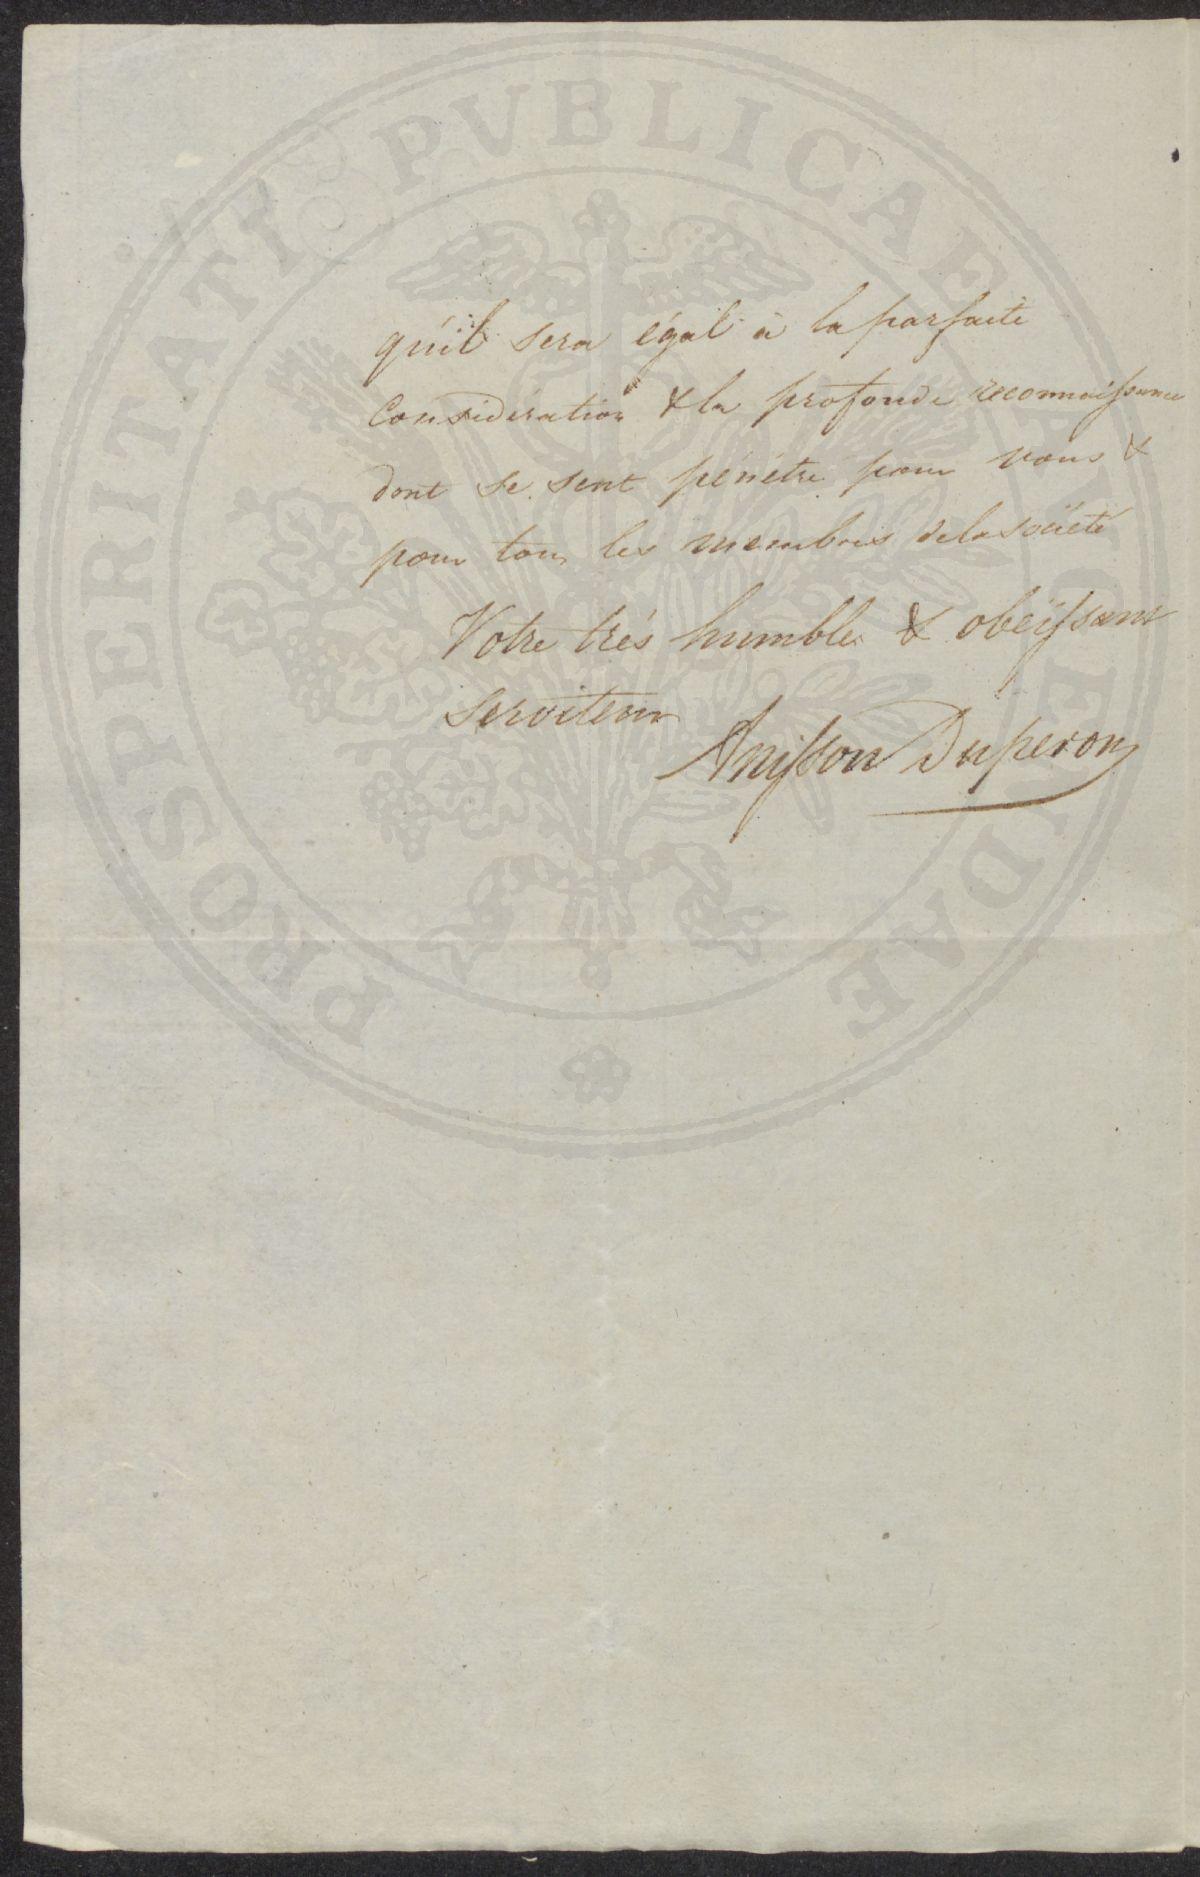 qu'il sera égal à la parfaite
Considération & la profonde reconnaissance
dont se sent pénétré pour vous &
pour tous les membres de la société
Votre très humble & obéissant
serviteur
Anisson Duperon
PROSPERITATI PVBLICAE AVGENDAE